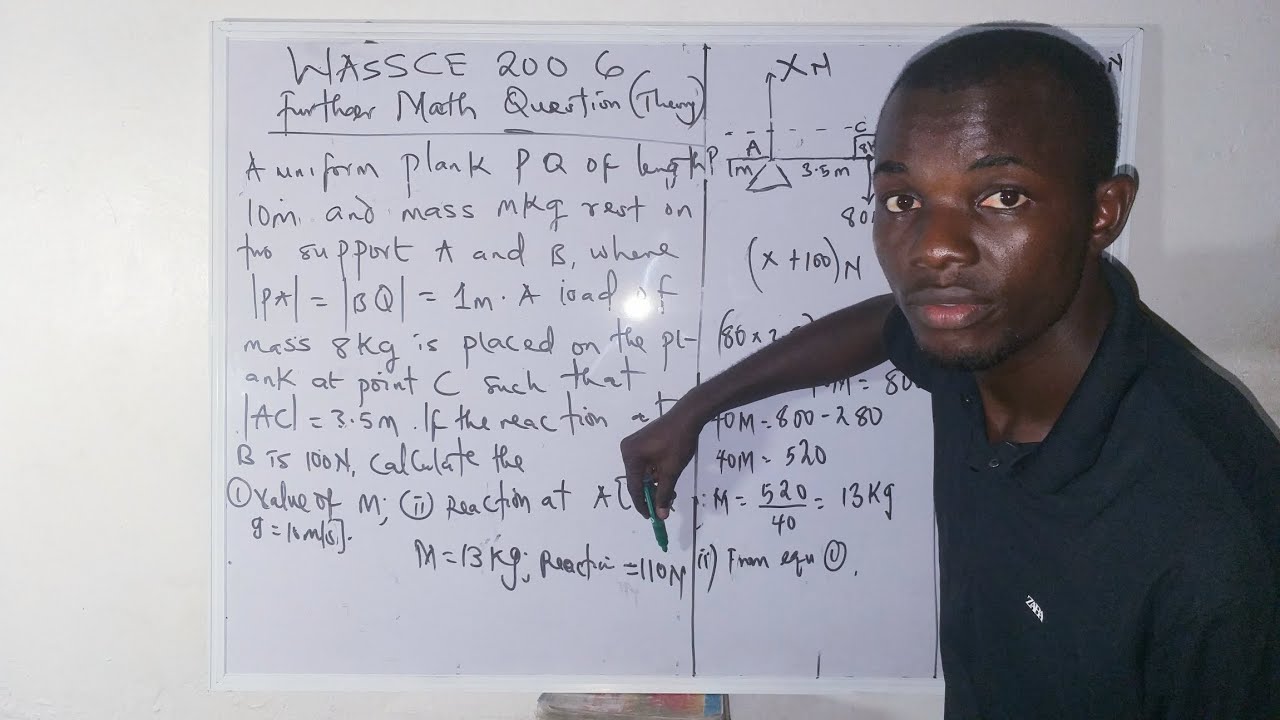 WASSCE 2006
Further Math Question (Theory)
A uniform plank PQ of length
10m and mass MKg rest on
two support A and B, where
|PA| = |BQ| = 1m. A load of
mass 8Kg is placed on the pl-
ank at point C such that
|AC| = 3.5m. If the reaction at
B is 100N, calculate the
① value of M; (ii) Reaction at A [
g = 10m/s].
M = 13Kg; Reaction = 110N
XN
N
P
A
C
1m
3.5m
80
(X + 100)N
(80 x
M = 80
40M = 800 - 280
40M = 520
∴ M = 520/40 = 13Kg
ii) From equ ①.
ZARA